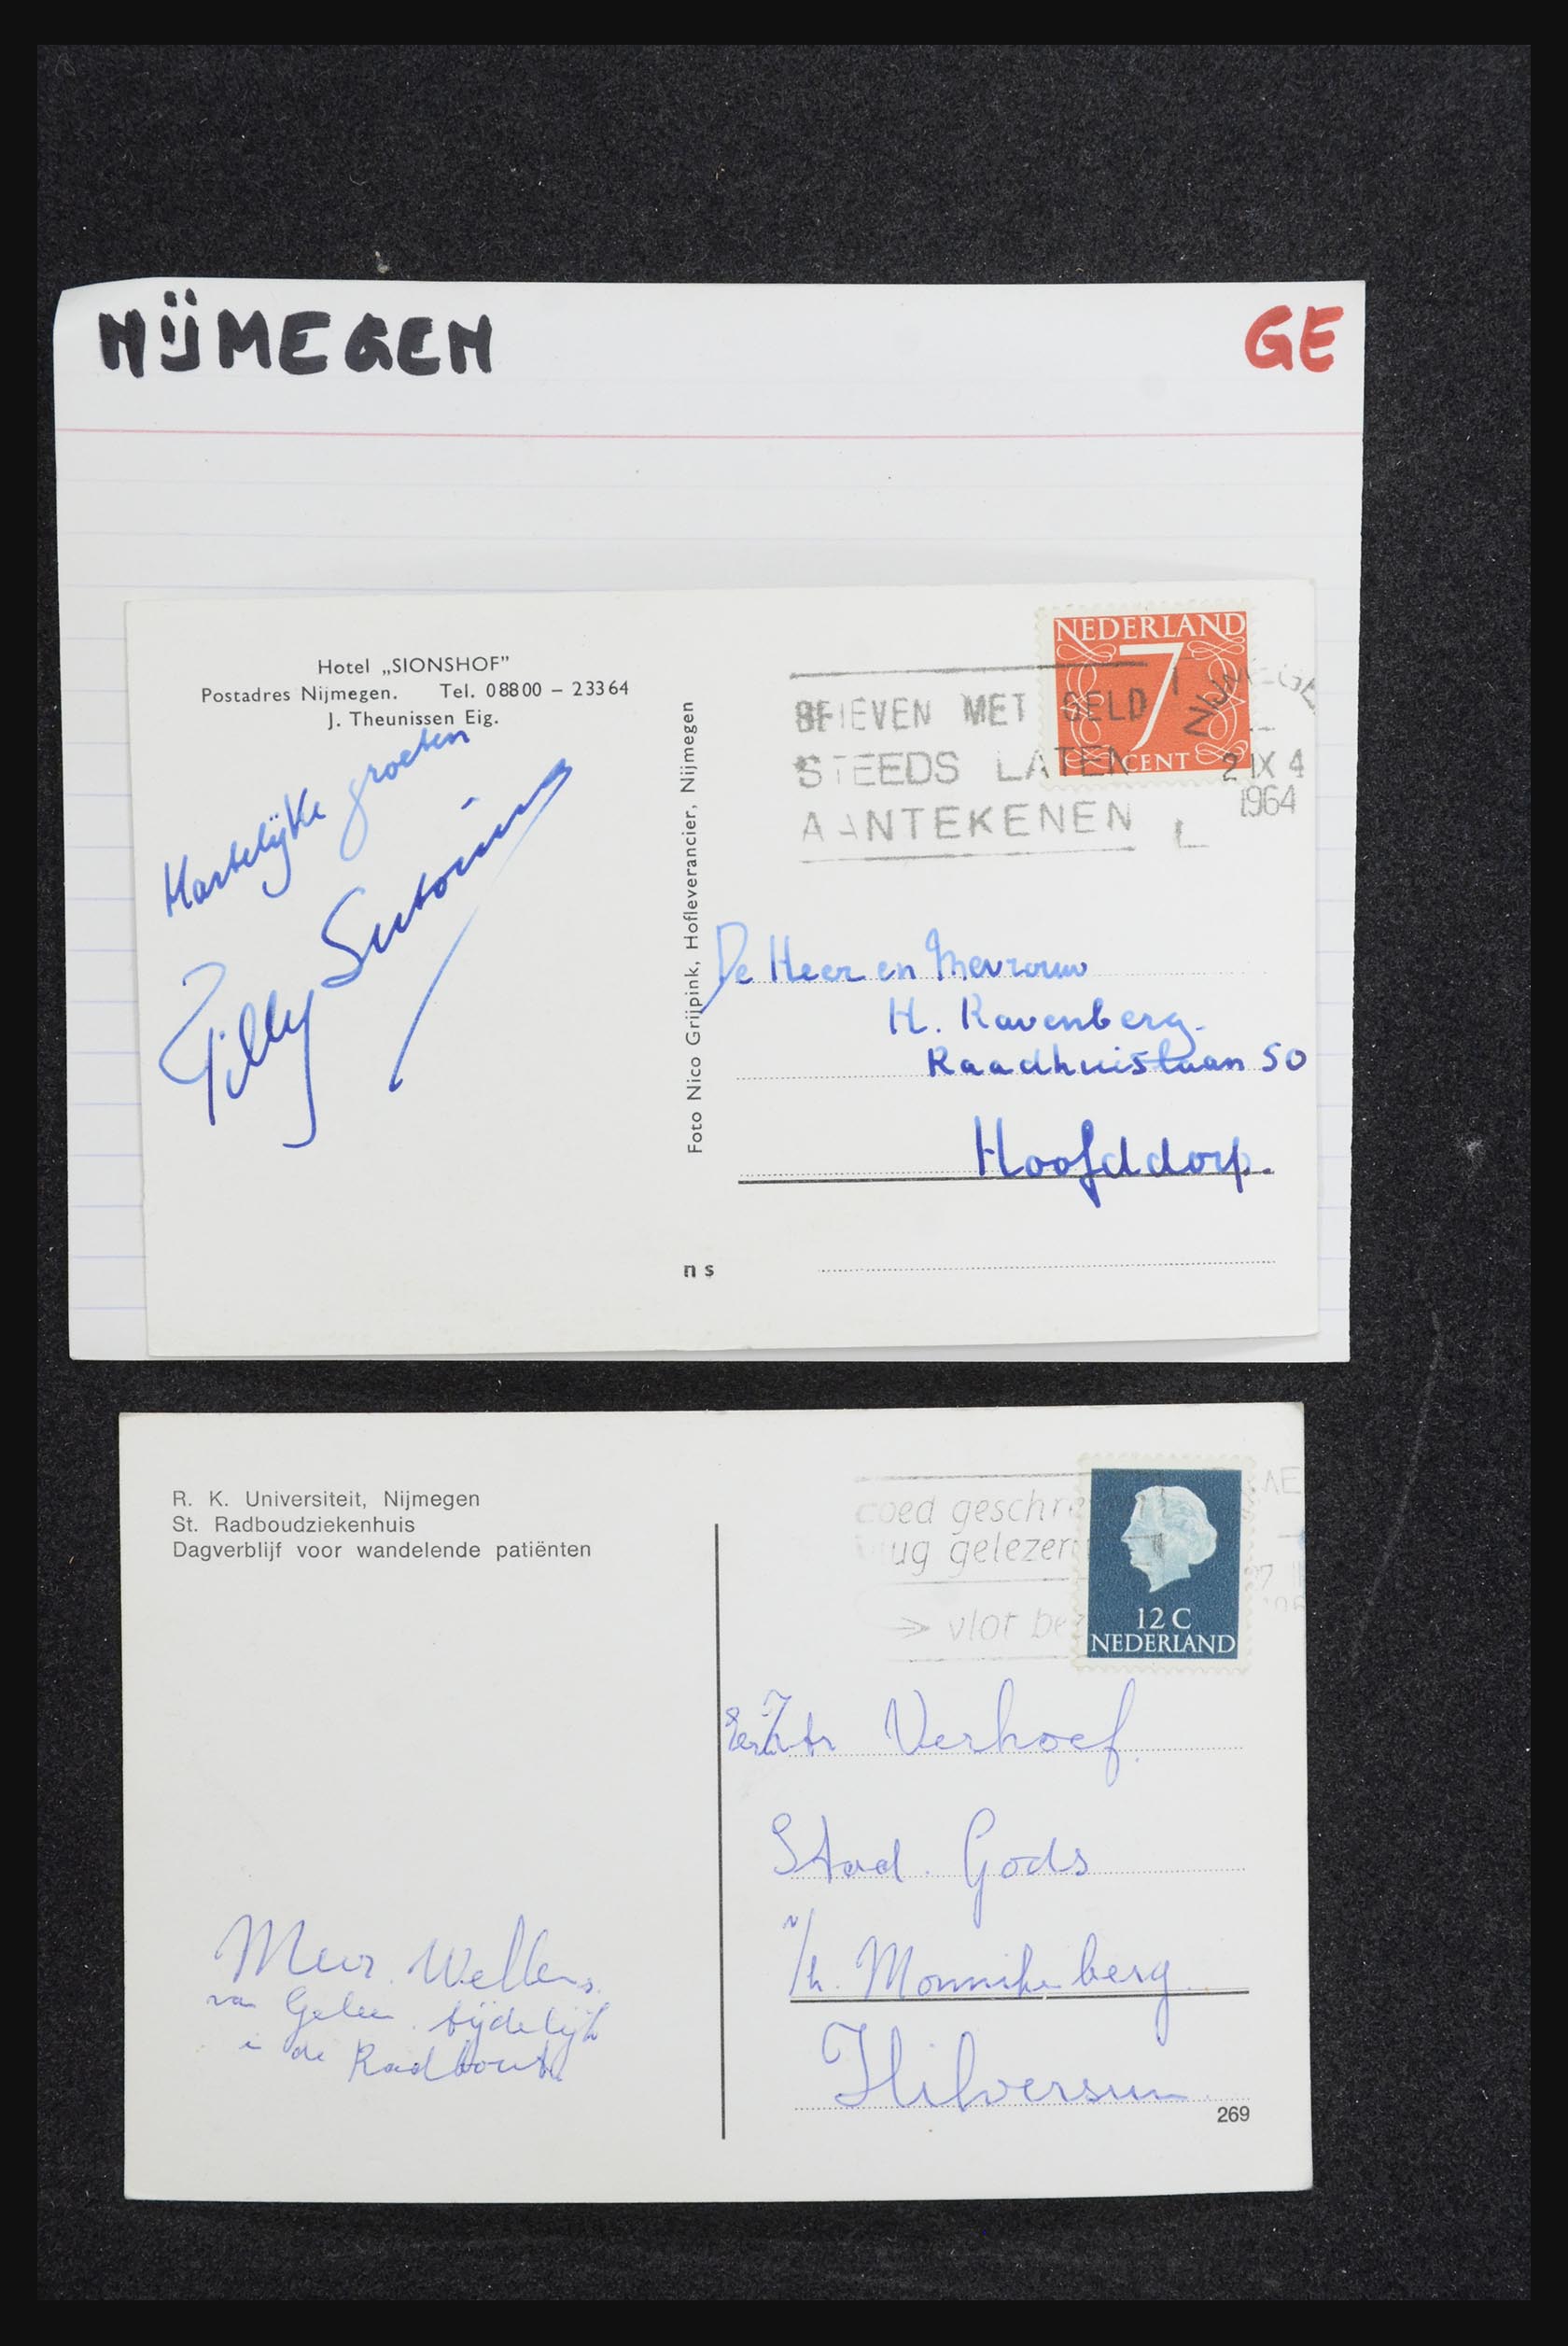 NIJMEGEN
GE
Hotel „SIONSHOF”
Postadres Nijmegen. Tel. 08800 – 23364
J. Theunissen Eig.
Hartelijke groeten
Foto Nico Grijpink, Hofleverancier, Nijmegen
NEDERLAND
7
CENT
BRIEVEN MET GELD
STEEDS LATEN
AANTEKENEN
NIJMEGE
2 IX 4
1964
De Heer en Mevrouw
H. Ravenberg.
Raadhuislaan 50
Hoofddorp.
ns
R. K. Universiteit, Nijmegen
St. Radboudziekenhuis
Dagverblijf voor wandelende patiënten
goed geschre
ug gelezen
vlot be
12 C
NEDERLAND
Verhoef.
Stad Gods
Monnikenberg
Hilversum
269
Mevr. Wellens
van Geleen tijdelijk
in de Radboud